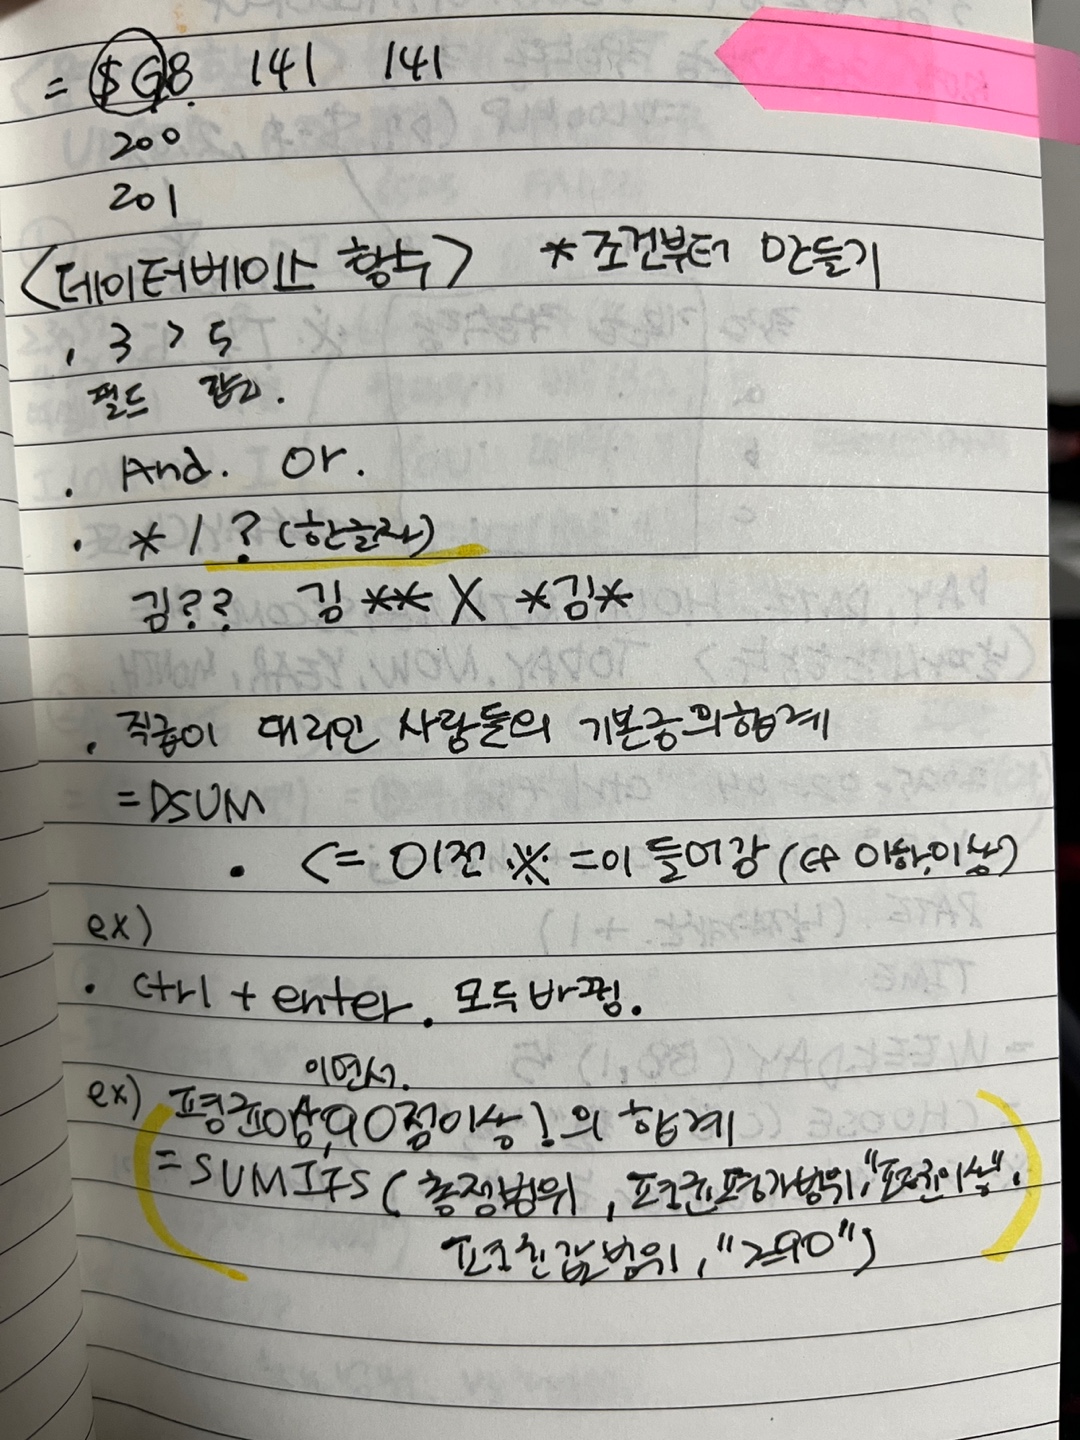 = $G8. 141 141
200
201
<데이터베이스 함수> *조건부터 만들기
. 3 > 5
필드 값.
. And. or.
. * / ? (한글자)
김?? 김** X *김*
. 직급이 대리인 사람들의 기본급의합계
=DSUM
. <= 이전 ※ =이 들어감 (이하,이상)
ex)
. ctrl + enter. 모두바뀜.
이면서.
ex) 평균이상,90점이상 의 합계
=SUMIFS(총점범위, 평균평가범위,"평균이상",
평균값범위, "≥90")